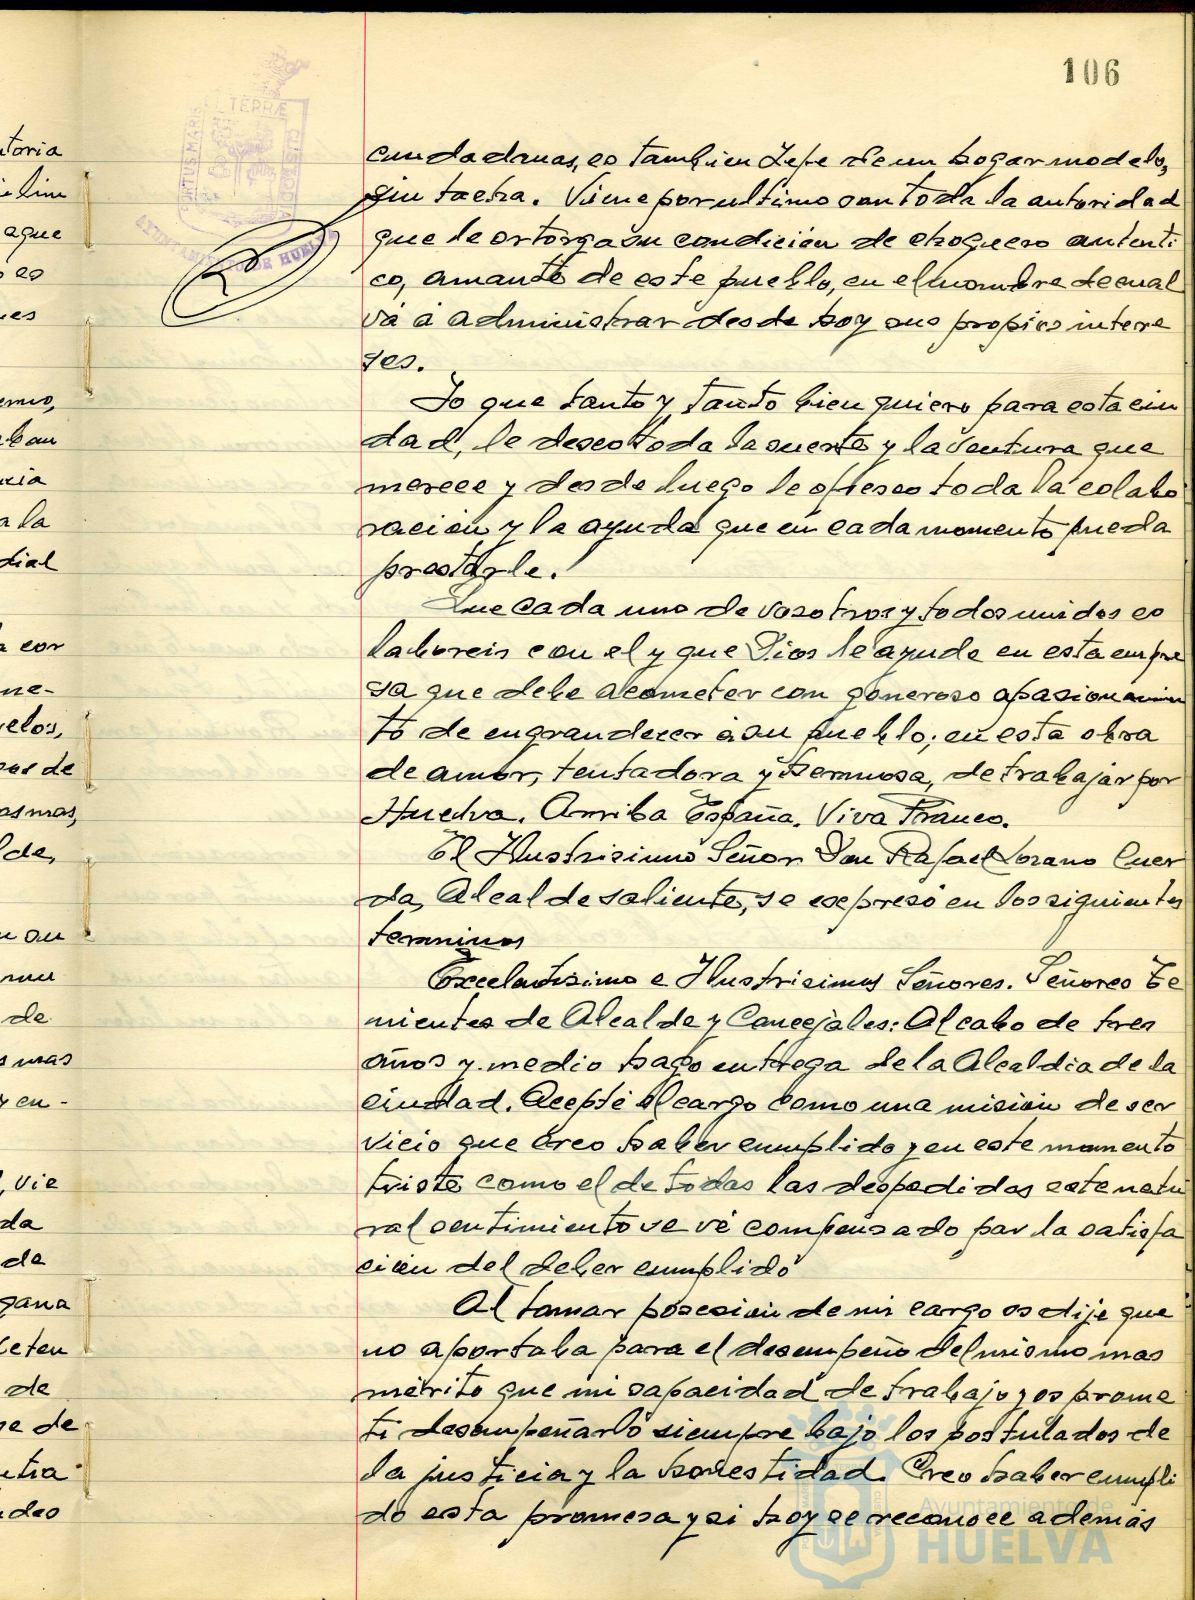 106
PORTUS MARIS ET TERRÆ CUSTODIA
AYUNTAMIENTO DE HUELVA
ciudadanas, es tambien Jefe de un hogar modelo,
sin tacha. Viene por ultimo con toda la autoridad
que le ortorga su condición de choquero autenti
co, amante de este pueblo, en el nombre de cual
vá á administrar desde hoy sus propios intere
ses.
Yo que tanto y tanto bien quiero para esta ciu
dad, le deseo toda la suerte y la ventura que
merece y desde luego le ofresco toda la colabo
racion y la ayuda que en cada momento pueda
prestarle.
Que cada uno de vosotros y todos unidos co
laboreis con el y que Dios le ayude en esta empre
sa que debe acometer con generoso apasionamien
to de engrandecer á su pueblo; en esta obra
de amor, tentadora y hermosa, de trabajar por
Huelva. Arriba España. Viva Franco.
El Ilustrisimo Señor Don Rafael Lozano Cuer
da, Alcalde saliente, se expresó en los siguientes
terminos
Excelentisimo e Ilustrisimos Señores. Señores Te
nientes de Alcalde y Concejales: Al cabo de tres
años y medio hago entrega de la Alcaldia de la
ciudad. Acepté el cargo como una misión de ser
vicio que creo haber cumplido y en este momento
triste como el de todas las despedidas este natu
ral sentimiento se vé compensado por la satisfa
ción del deber cumplido
Al tomar posesión de mi cargo os dije que
no aportaba para el desempeño del mismo mas
mérito que mi capacidad de trabajo y os prome
ti desempeñarlo siempre bajo los postulados de
la justicia y la honestidad. Creo haber cumpli
do esta promesa y si hoy se reconoce además
toria
aque
o es
emo,
ban
a la
dial
a cor
me-
velos,
as de
as mas,
lde,
de
s mas
y en-
l, vie
da
de
gana
de
se de
Ayuntamiento de
HUELVA